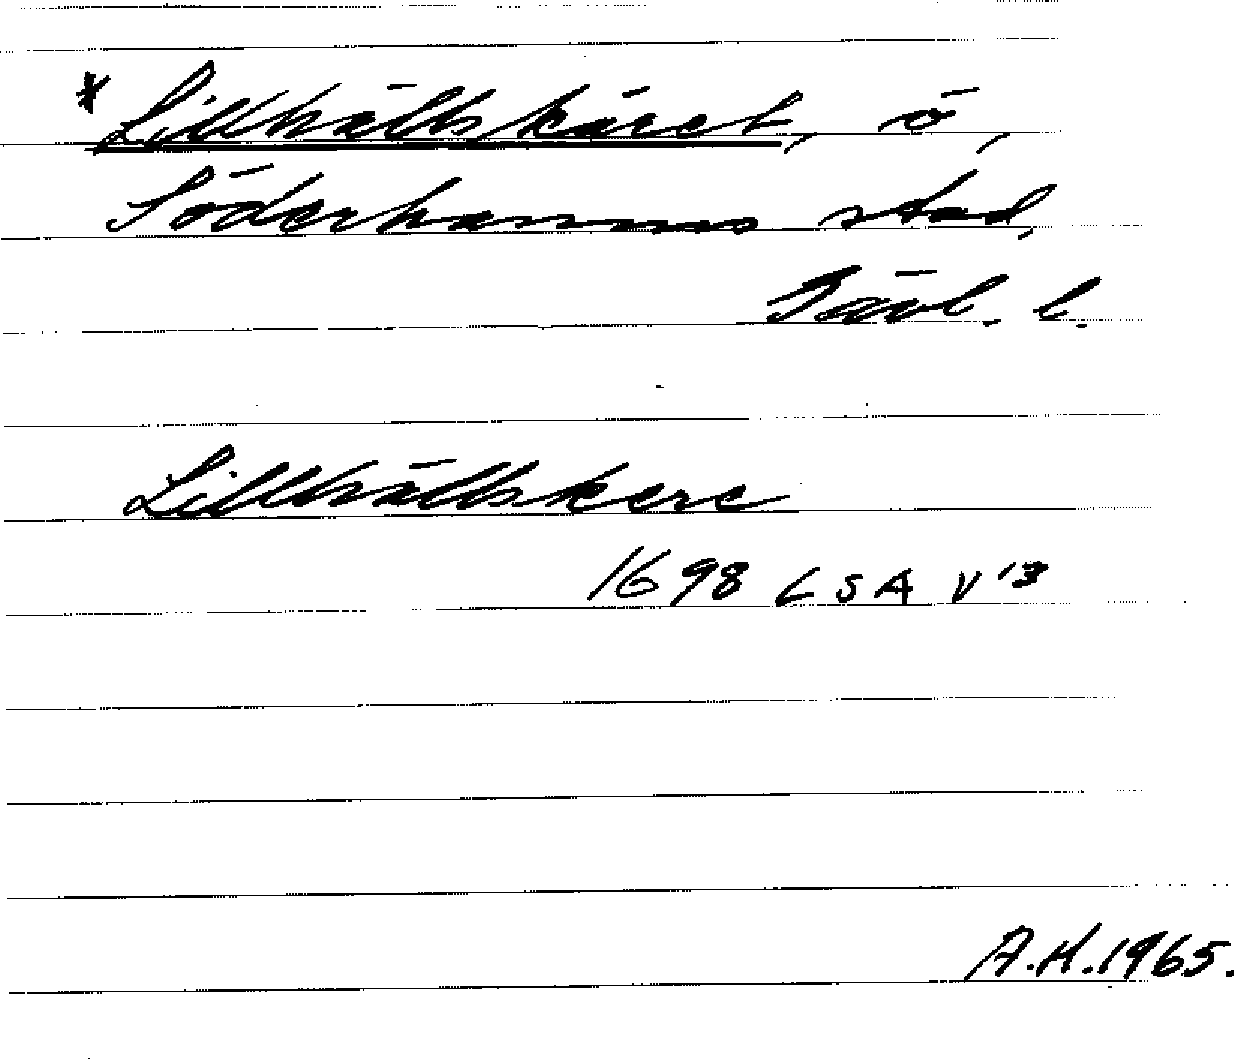 * Lillhällskäret, ö,
Söderhamns stad,
Gävl. l.
Lillhällskere
1698 LSA V 13
A.H. 1965.